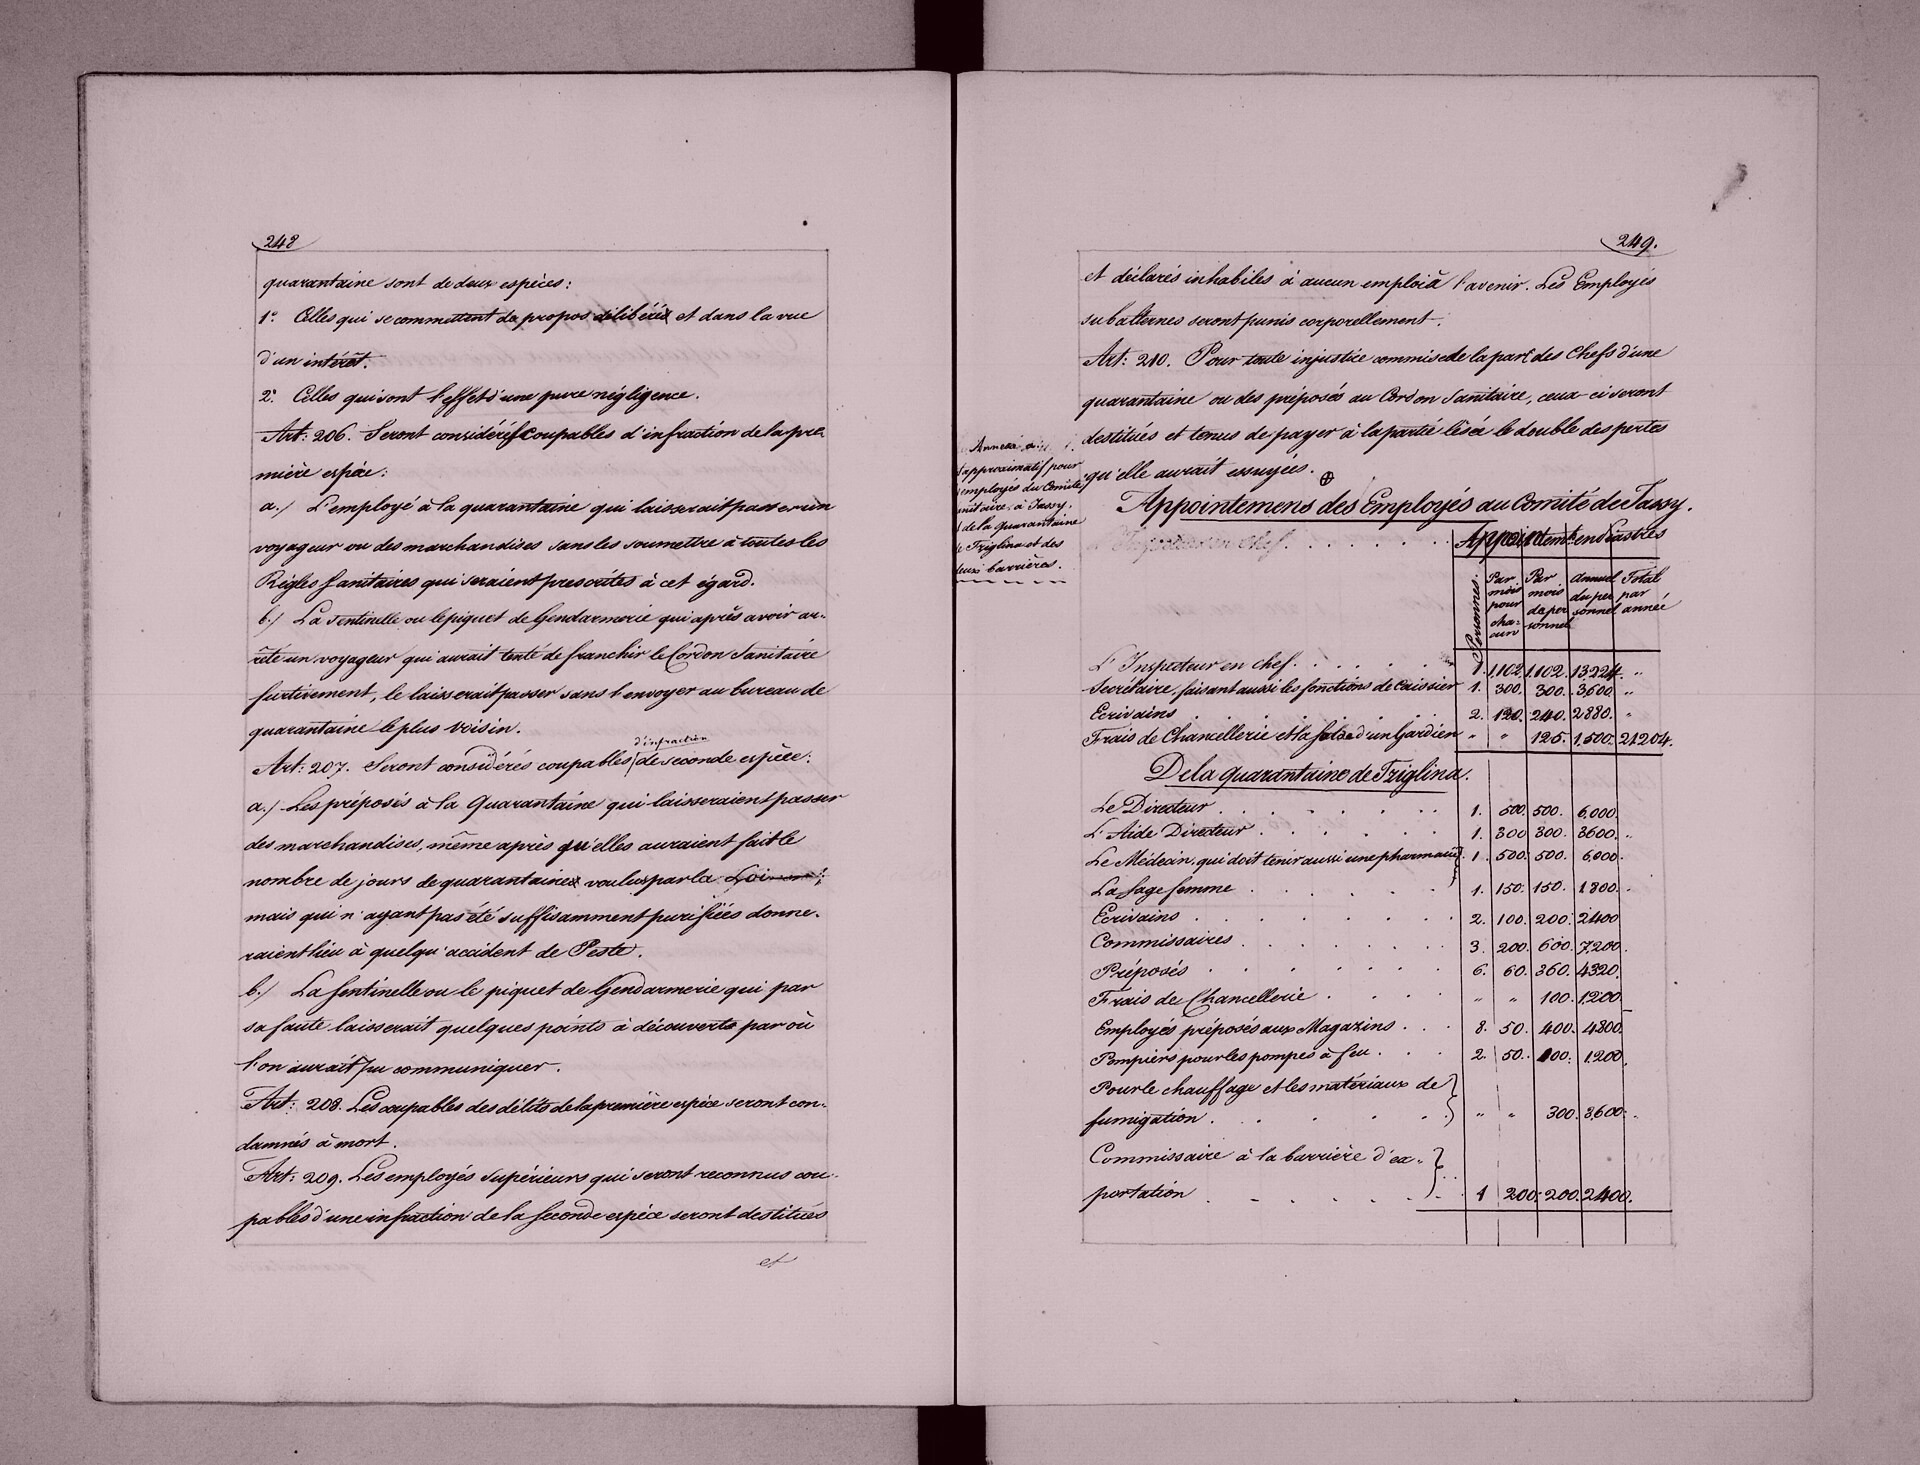 248
quarantaine sont de deux espèces:
1º. Celles qui se commettent de propos délibéré et dans la vue
d'un intérêt.
2º. Celles qui sont l'effet d'une pure négligence.
Art: 206. Seront considérés coupables d'infraction de la pre-
mière espèce:
a./ L'employé à la quarantaine qui laisserait passer un
voyageur ou des marchandises sans les soumettre à toutes les
Règles Sanitaires qui seraient prescrites à cet égard.
b./ La Sentinelle ou le piquet de Gendarmerie qui après avoir ar-
rêté un voyageur qui aurait tenté de franchir le Cordon Sanitaire
furtivement, le laisserait passer sans l'envoyer au bureau de
quarantaine le plus voisin.
d'infraction
Art: 207. Seront considérés coupables de seconde espèce:
a./ Les préposés à la Quarantaine qui laisseraient passer
des marchandises, même après qu'elles auraient fait le
nombre de jours de quarantaine voulus par la Loi
mais qui n'ayant pas été suffisamment purifiées donne-
raient lieu à quelqu'accident de Peste.
b./ La Sentinelle ou le piquet de Gendarmerie qui par
sa faute laisserait quelques points à découverts par où
l'on aurait pu communiquer.
Art: 208. Les coupables des délits de la première espèce seront con-
damnés à mort.
Art: 209. Les employés supérieurs qui seront reconnus cou-
pables d'une infraction de la seconde espèce seront destitués
et
249.
et déclarés inhabiles à aucun emploi à l'avenir. Les Employés
subalternes seront punis corporellement.
Art: 210. Pour toute injustice commise de la part des Chefs d'une
quarantaine ou des préposés au Cordon Sanitaire, ceux ci seront
destitués et tenus de payer à la partie lésée le double des pertes
qu'elle aurait essuyées. ⊕
approximatif pour
employés du Comité
à Jassy.
de la Quarantaine
Triglina et des
barrières.
Appointemens des Employés au Comité de Jassy.
Inspecteur en Chef . . . . . . . Appointemt. en Piastres
Personnes. Par mois pour cha-cun Par mois de per sonnel Annuel du per sonnel Total par année
L'Inspecteur en chef . . . . . . 1. 1,102. 1,102. 13,224. "
Secrétaire, faisant aussi les fonctions de Caissier 1. 300. 300. 3,600. "
Ecrivains . . . . . 2. 120. 240. 2880. "
Frais de Chancellerie et la solde d'un Gardien " " 125. 1,500. 21204.
De la quarantaine de Triglina.
Le Directeur . . . . . . . . 1. 500. 500. 6,000.
L'Aide Directeur . . . . . . 1. 300 300. 3600. "
Le Médecin, qui doit tenir aussi une pharmacie 1. 500. 500. 6,000.
La Sage femme . . . . . . 1. 150. 150. 1800.
Ecrivains . . . . . . . . 2. 100. 200. 2400
Commissaires . . . . . . . 3. 200. 600. 7,200.
Préposés . . . . . . . 6. 60. 360. 4320.
Frais de Chancellerie . . . . " " 100. 1,200.
Employés préposés aux Magazins . . . 8. 50. 400. 4800.
Pompiers pour les pompes à feu . . . 2. 50. 100. 1,200.
Pour le chauffage et les matériaux de
fumigation . . . . . . " " 300. 3,600.
Commissaire à la barrière d'ex-
portation . . . . . . . 1 200. 200. 2400.